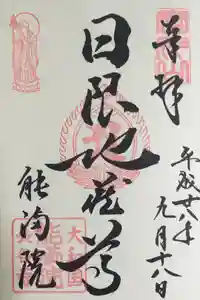 奉拝
平成廿八年九月十八日
日限地蔵尊
能満院